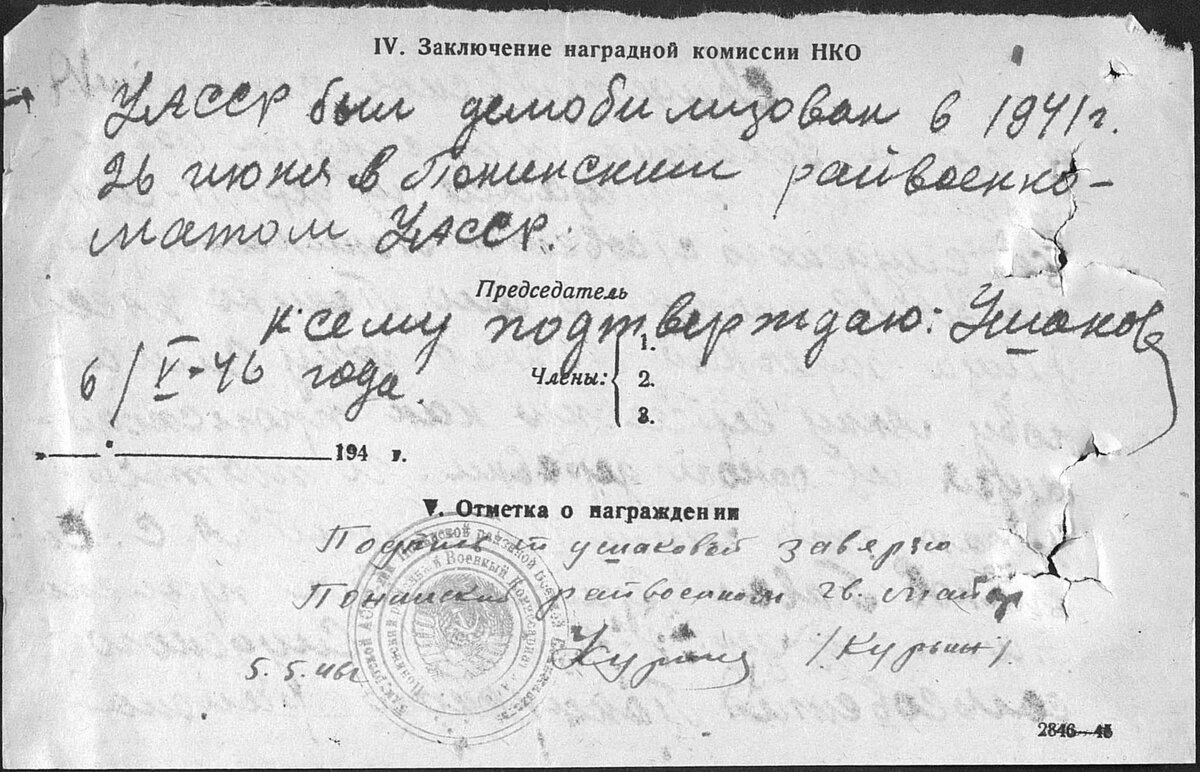 IV. Заключение наградной комиссии НКО
УАССР был демобилизован в 1941 г.
26 июня в Понинским райвоенко-
матом УАССР.
Председатель
к сему подтверждаю: Ушаков
1.
6/V-46 года.
Члены: 2.
3.
194 г.
V. Отметка о награждении
Подпись т ушаковой заверяю
Понинский райвоенком гв. майор
/Курын/
5.5.46г
2846—45